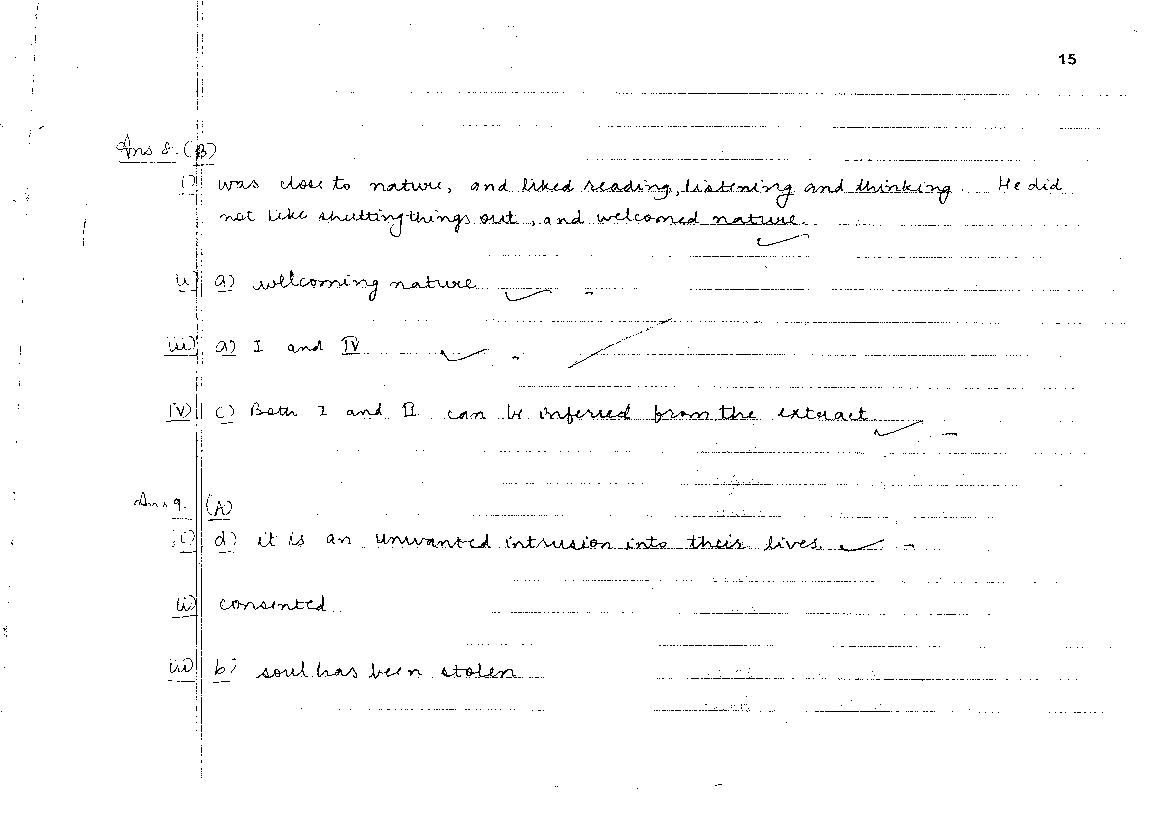 15
Ans 8. (B)
i) was close to nature, and liked reading, listening and thinking. He did
not like shutting things out, and welcomed nature.
ii) a) welcoming nature
iii) a) I and IV
IV) c) Both I and II can be inferred from the extract
Ans 9. (A)
i) d) it is an unwanted intrusion into their lives
ii) consented
iii) b) soul has been stolen